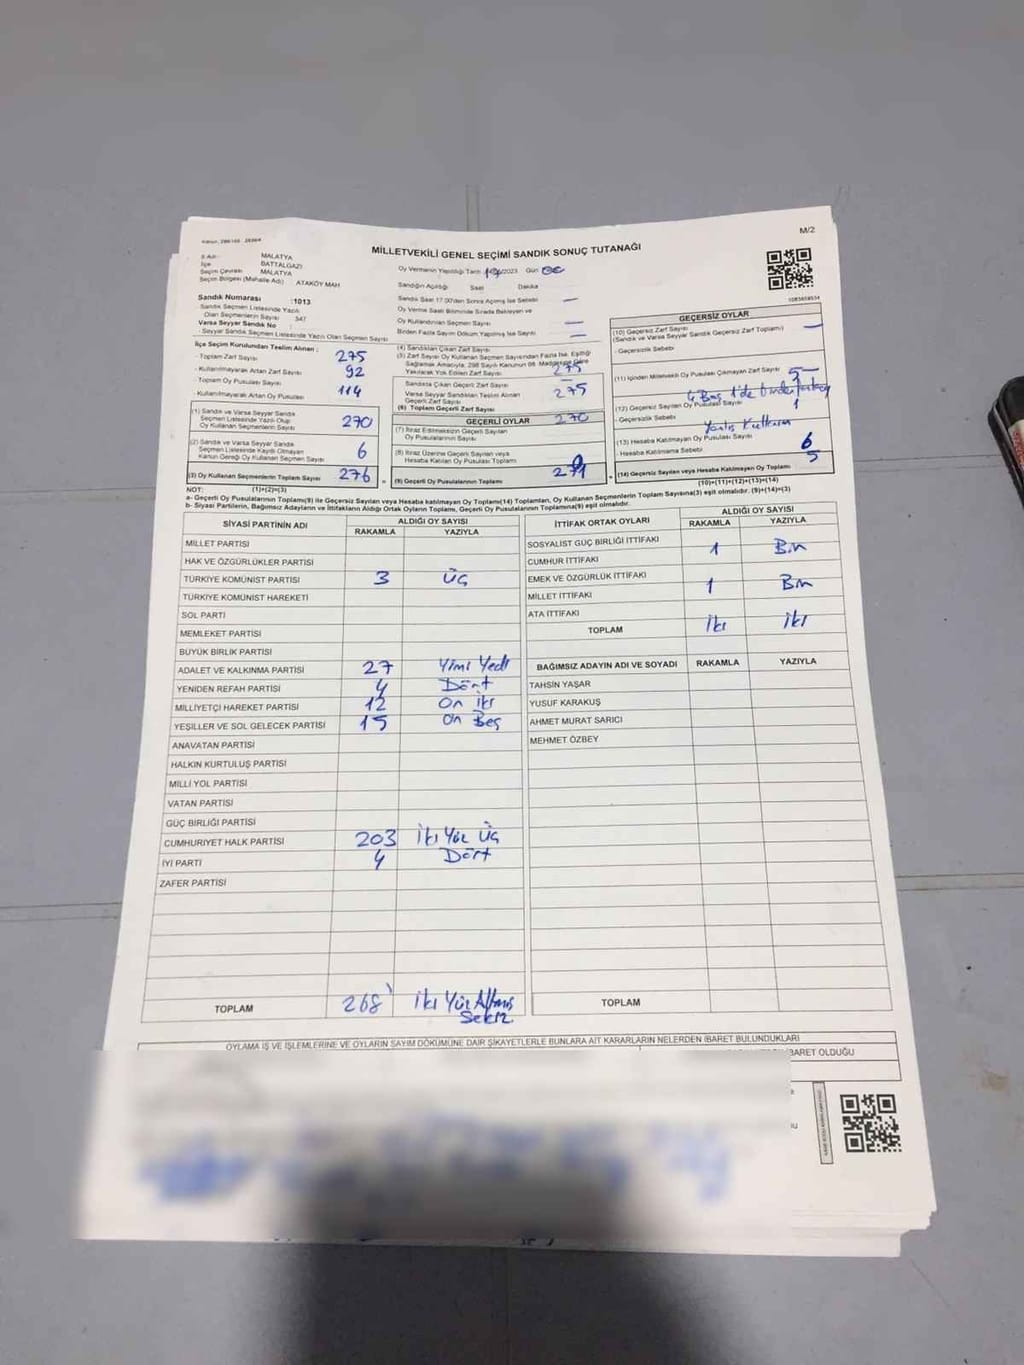 M/2
MİLLETVEKİLİ GENEL SEÇİMİ SANDIK SONUÇ TUTANAĞI
İl Adı : MALATYA
İlçe : BATTALGAZİ
Seçim Çevresi MALATYA
Seçim Bölgesi (Mahalle Adı) ATAKÖY MAH
Oy Vermenin Yapıldığı Tarih 2023 Gün
Sandığın Açıldığı Saat Dakika
Sandık Numarası :1013
Sandık Seçmen Listesinde Yazılı
Olan Seçmenlerin Sayısı 547
Varsa Seyyar Sandık No :
Seyyar Sandık Seçmen Listesinde Yazılı Olan Seçmen Sayısı
Sandık Saat 17.00'den Sonra Açılmış İse Sebebi —
Oy Verme Saati Bitiminde Sırada Bekleyen ve
Oy Kullandırılan Seçmen Sayısı —
Birden Fazla Sayım Döküm Yapılmış İse Sayısı —
İlçe Seçim Kurulundan Teslim Alınan :
- Toplam Zarf Sayısı 275
- Kullanılmayarak Artan Zarf Sayısı 92
- Toplam Oy Pusulası Sayısı
- Kullanılmayarak Artan Oy Pusulası 114
(1) Sandık ve Varsa Seyyar Sandık
Seçmen Listesinde Yazılı Olup
Oy Kullanan Seçmenlerin Sayısı 270
(2) Sandık ve Varsa Seyyar Sandık
Seçmen Listesinde Kayıtlı Olmayan
Kanun Gereği Oy Kullanan Seçmen Sayısı 6
(3) Oy Kullanan Seçmenlerin Toplam Sayısı 276
(1)+(2)=(3)
(4) Sandıktan Çıkan Zarf Sayısı
(5) Zarf Sayısı Oy Kullanan Seçmen Sayısından Fazla İse, Eşitliği
Sağlamak Amacıyla, 298 Sayılı Kanunun 98. Maddesine Göre
Yakılarak Yok Edilen Zarf Sayısı 275
Sandıkta Çıkan Geçerli Zarf Sayısı —
Varsa Seyyar Sandıktan Teslim Alınan
Geçerli Zarf Sayısı 275
(6) Toplam Geçerli Zarf Sayısı
GEÇERLİ OYLAR
(7) İtiraz Edilmeksizin Geçerli Sayılan
Oy Pusulalarının Sayısı 270
(8) İtiraz Üzerine Geçerli Sayılan veya
Hesaba Katılan Oy Pusulası Toplamı
(9) Geçerli Oy Pusulalarının Toplamı
GEÇERSİZ OYLAR
(10) Geçersiz Zarf Sayısı
(Sandık ve Varsa Seyyar Sandık Geçersiz Zarf Toplamı) —
- Geçersizlik Sebebi
(11) İçinden Milletvekili Oy Pusulası Çıkmayan Zarf Sayısı 5
(12) Geçersiz Sayılan Oy Pusulası Sayısı 1
- Geçersizlik Sebebi
(13) Hesaba Katılmayan Oy Pusulası Sayısı 6
- Hesaba Katılmama Sebebi 5
(14) Geçersiz Sayılan veya Hesaba Katılmayan Oy Toplamı
(10)+(11)+(12)+(13)=(14)
NOT:
a- Geçerli Oy Pusulalarının Toplamı(9) ile Geçersiz Sayılan veya Hesaba katılmayan Oy Toplamı(14) Toplamları, Oy Kullanan Seçmenlerin Toplam Sayısına(3) eşit olmalıdır. (9)+(14)=(3)
b- Siyasi Partilerin, Bağımsız Adayların ve İttifakların Aldığı Oy Ortak Oyların Toplamı, Geçerli Oy Pusulalarının Toplamına(9) eşit olmalıdır.
SİYASİ PARTİNİN ADI ALDIĞI OY SAYISI
RAKAMLA YAZIYLA
MİLLET PARTİSİ
HAK VE ÖZGÜRLÜKLER PARTİSİ
TÜRKİYE KOMÜNİST PARTİSİ 3 Üç
TÜRKİYE KOMÜNİST HAREKETİ
SOL PARTİ
MEMLEKET PARTİSİ
BÜYÜK BİRLİK PARTİSİ
ADALET VE KALKINMA PARTİSİ 27 Yimi Yedi
YENİDEN REFAH PARTİSİ 4 Dört
MİLLİYETÇİ HAREKET PARTİSİ 12 On iki
YEŞİLLER VE SOL GELECEK PARTİSİ 15 On Beş
ANAVATAN PARTİSİ
HALKIN KURTULUŞ PARTİSİ
MİLLİ YOL PARTİSİ
VATAN PARTİSİ
GÜÇ BİRLİĞİ PARTİSİ
CUMHURİYET HALK PARTİSİ 203 İki Yüz Üç
İYİ PARTİ 4 Dört
ZAFER PARTİSİ
TOPLAM 268 İki Yüz Altmış
Sekiz
İTTİFAK ORTAK OYLARI ALDIĞI OY SAYISI
RAKAMLA YAZIYLA
SOSYALİST GÜÇ BİRLİĞİ İTTİFAKI
CUMHUR İTTİFAKI 1 Bir
EMEK VE ÖZGÜRLÜK İTTİFAKI
MİLLET İTTİFAKI 1 Bir
ATA İTTİFAKI
TOPLAM iki iki
BAĞIMSIZ ADAYIN ADI VE SOYADI RAKAMLA YAZIYLA
TAHSİN YAŞAR
YUSUF KARAKUŞ
AHMET MURAT SARICI
MEHMET ÖZBEY
TOPLAM
OYLAMA İŞ VE İŞLEMLERİNE VE OYLARIN SAYIM DÖKÜMÜNE DAİR ŞİKAYETLERLE BUNLARA AİT KARARLARIN NELERDEN İBARET BULUNDUKLARI
İBARET OLDUĞU